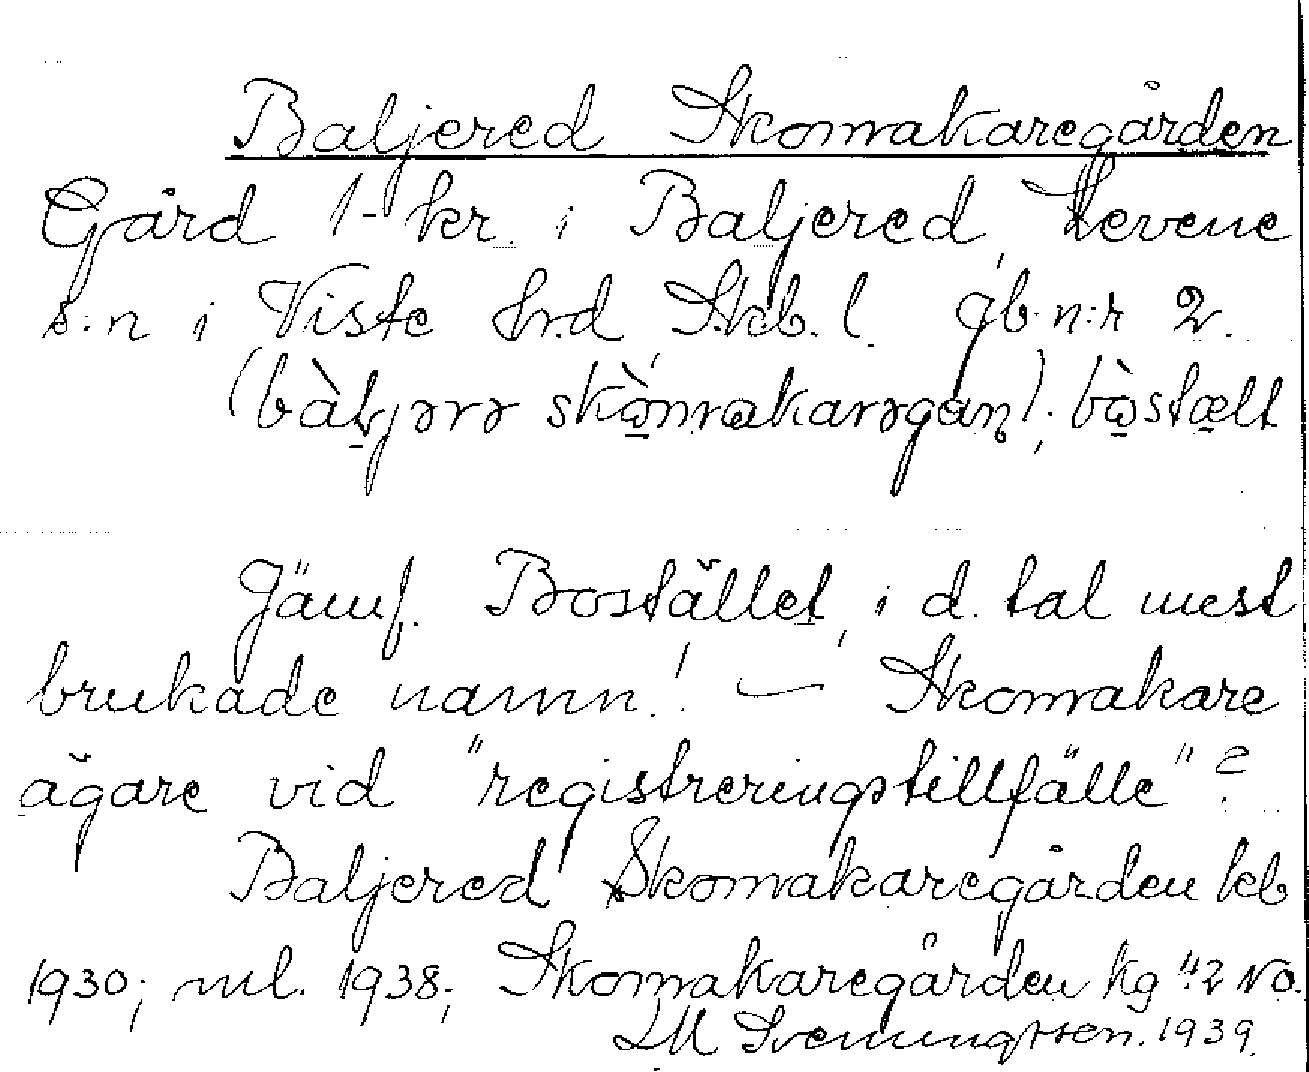 Baljered Skomakaregården
Gård 1 kr. i Baljered, Levene
s:n i Viste hrd, Skb. l. gb n:r 2.
(bàḷjərə skò̱makarəgaṇ); bò̱stælt
Jämf. Bostället, i d. tal mest
brukade namn! — Skomakare
ägare vid "registreringstillfälle"?
Baljered Skomakaregården kb
1930; ml. 1938; Skomakaregården kg 42 NO.
LM Svenungsson. 1939.